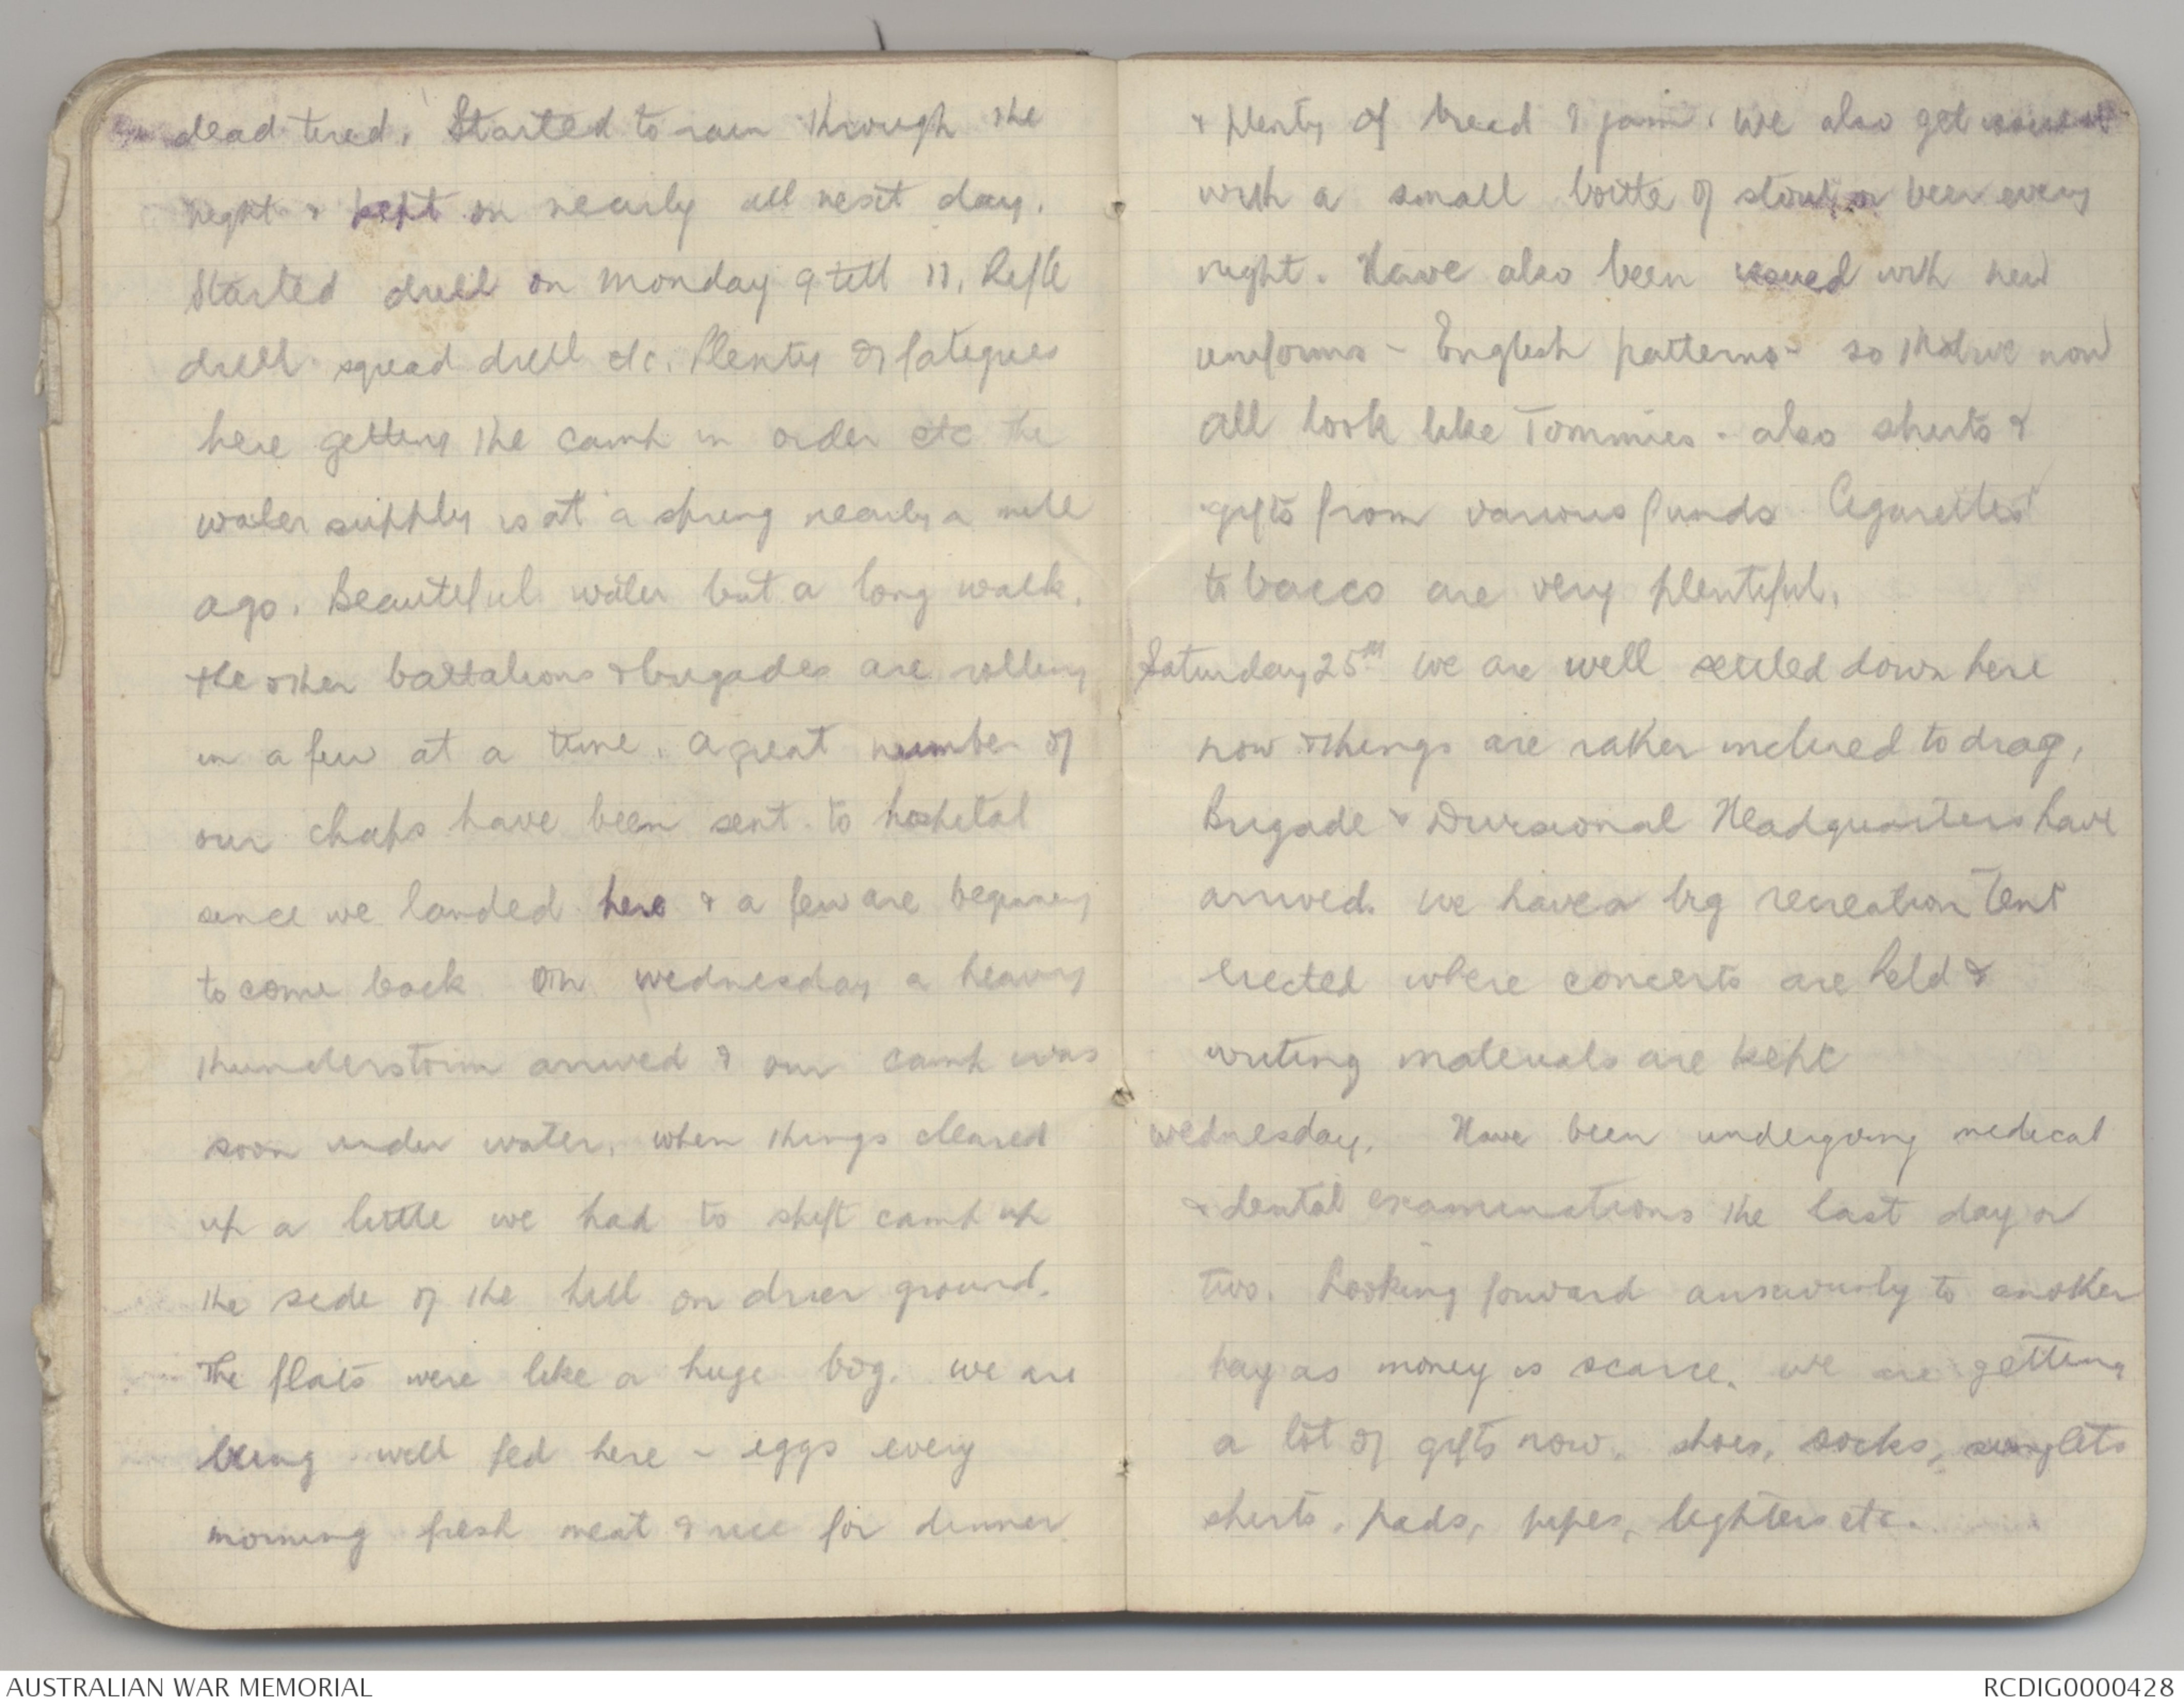 dead tired. Started to rain through the
night & kept on nearly all next day.
Started drill on Monday 9 till 11. Rifle
drill squad drill etc. Plenty of fatigues
here getting the camp in order etc the
water supply is at a spring nearly a mile
ago. Beautiful water but a long walk.
The other battalions & brigades are rolling
in a few at a time. A great number of
our chaps have been sent to hospital
since we landed here & a few are beginning
to come back. On wednesday a heavy
thunderstorm arrived & our camp was
soon under water. when things cleared
up a little we had to shift camp up
the side of the hill on drier ground.
The flats were like a huge bog. we are
being well fed here - eggs every
morning fresh meat & rice for dinner
& plenty of bread & jam. We also get issued
with a small bottle of stout or beer every
night. Have also been issued with new
uniforms - English patterns - so that we now
all look like Tommies - also shirts &
gifts from various funds. Cigarettes &
tobacco are very plentiful.
Saturday 25th We are well settled down here
now & things are rather inclined to drag.
Brigade & Divisional Headquarters have
arrived. We have a big recreation Tent
erected where concerts are held &
writing materials are kept
Wednesday. Have been undergoing medical
& dental examinations the last day or
two. Looking forward anxiously to another
pay as money is scarce. we are getting
a lot of gifts now. shoes, socks, singlets
shirts, pads, pipes, lighters etc.
AUSTRALIAN WAR MEMORIAL
RCDIG0000428